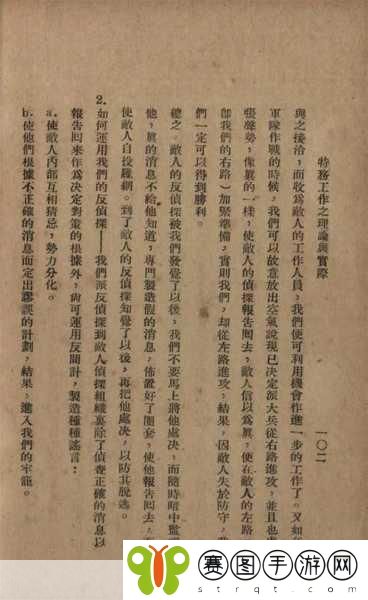 特務工作之理論與實際 一〇二
與之接洽，而收爲敵人的工作人員，我們便可利用機會作進一步的工作了。又如
軍隊作戰的時候，我們可以故意放出空氣說現已决定派大兵從右路進攻，並且也
張聲勢，像眞的一樣，使敵人的偵探報吿囘去，敵人信以爲眞，便在敵人的左路
卽我們的右路）加緊準備，實則我們，却從左路進攻，結果，因敵人失於防守，
們一定可以得到勝利。
總之，敵人的反偵探被我們發覺了以後，我們不要馬上將他處决，而隨時暗中監
他，眞的消息不給他知道，專門製造假的消息，佈置好了圈套，使他報吿囘去，
使敵人自投羅網。到了敵人的反偵探知覺了以後，再把他處决，以防其脫逃。
2.如何運用我們的反偵探——我們派反偵探到敵人偵探組織裏除了偵查正確的消息以
報吿囘來作爲决定對策的根據外，尙可運用反間計，製造種種謠言：
a.使敵人內部互相猜忌，勢力分化。
b.使他們根據不正確的消息而定出謬誤的計劃，結果，進入我們的牢籠。
赛图手游网
strqt.com